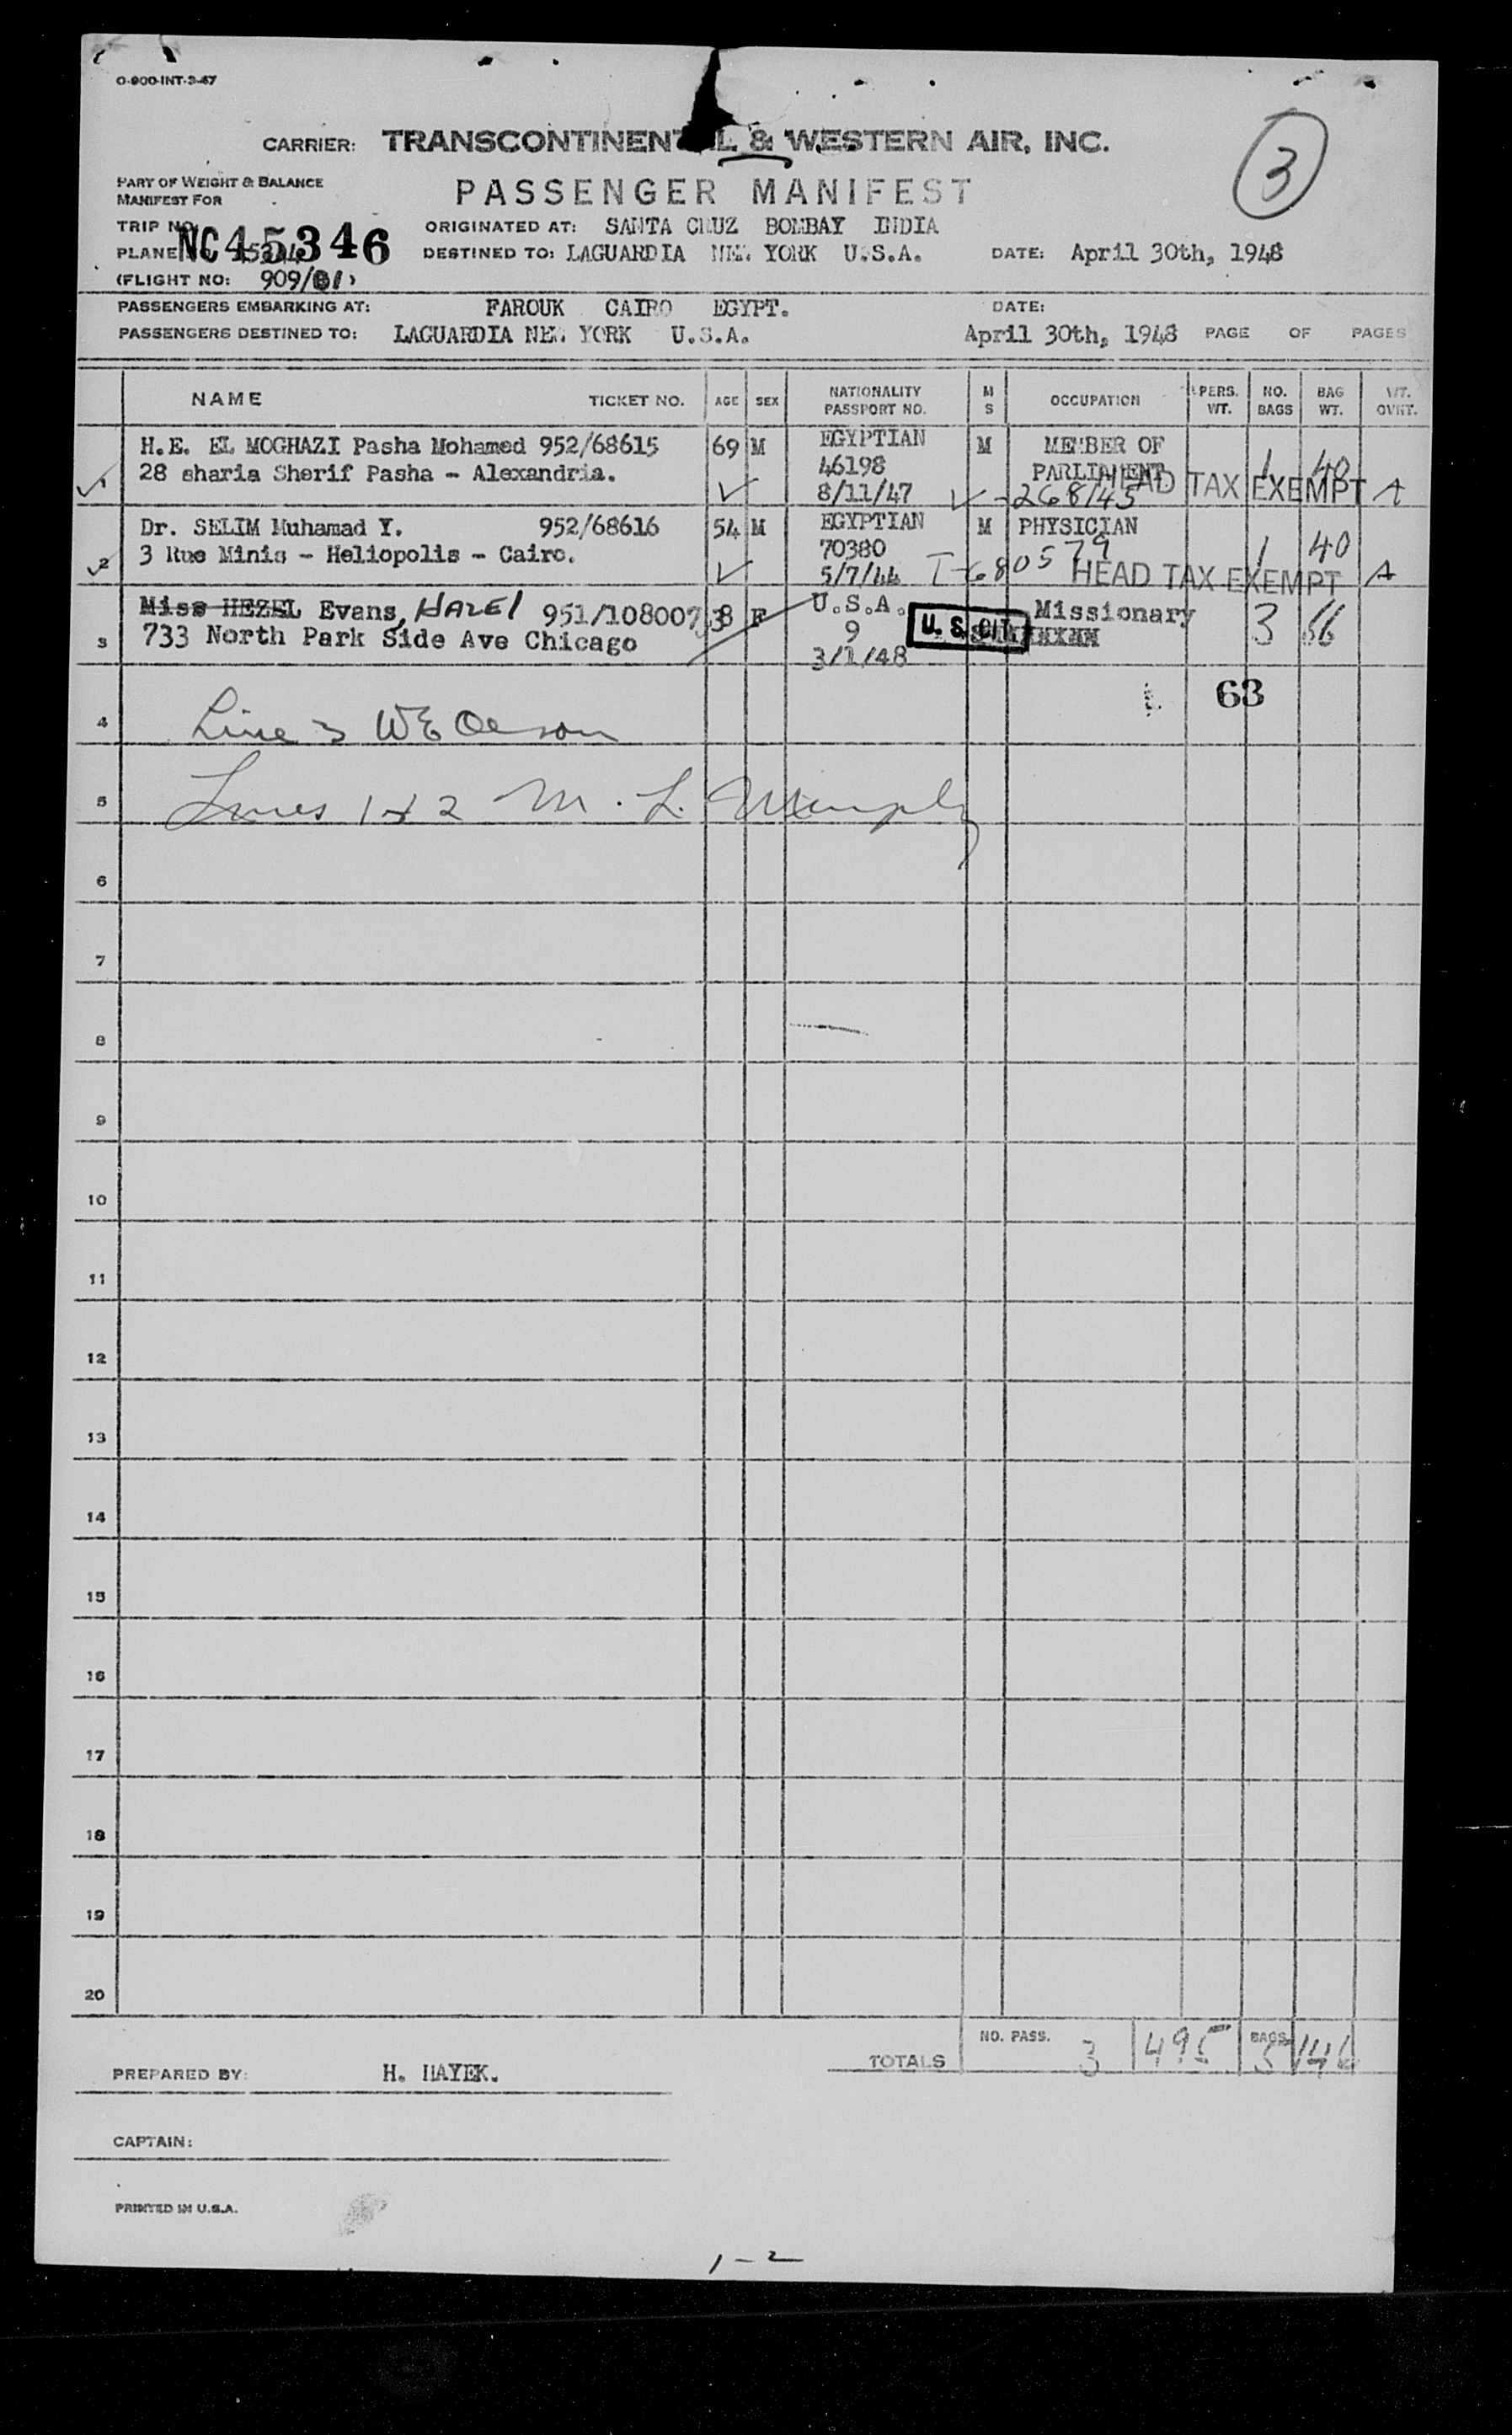 O-900-INT-3-47
CARRIER: TRANSCONTINENTAL & WESTERN AIR, INC.
3
PART OF WEIGHT & BALANCE
MANIFEST FOR
PASSENGER MANIFEST
TRIP NO. NC45346
ORIGINATED AT: SANTA CRUZ BOMBAY INDIA
PLANE
DESTINED TO: LAGUARDIA NEW YORK U.S.A. DATE: April 30th, 1948
(FLIGHT NO: 909/
PASSENGERS EMBARKING AT: FAROUK CAIRO EGYPT. DATE:
PASSENGERS DESTINED TO: LAGUARDIA NEW YORK U.S.A. April 30th, 1948 PAGE OF PAGES
NAME TICKET NO. AGE SEX NATIONALITY PASSPORT NO. M S OCCUPATION PERS. WT. NO. BAGS BAG WT. WT. OVNT.
H.E. EL MOGHAZI Pasha Mohamed 952/68615 69 M EGYPTIAN M MEMBER OF
28 sharia Sherif Pasha - Alexandria. 46198 PARLIAMENT 1 40
1 8/11/47 V-268145 HEAD TAX EXEMPT
Dr. SELIM Muhamad Y. 952/68616 54 M EGYPTIAN M PHYSICIAN
3 Rue Minis - Heliopolis - Cairo. 70380 1 40
2 5/7/44 T-680579 HEAD TAX EXEMPT
Miss HEZEL Evans, HAZEL 951/108007 38 F U.S.A. Missionary
733 North Park Side Ave Chicago 9 U.S. CIT 3 66
3 3/1/48
63
4 Line 3 W E Oleson
5 Lines 1 & 2 M. L.
6
7
8
9
10
11
12
13
14
15
16
17
18
19
20
TOTALS NO. PASS. 3 495 BAGS 5 146
PREPARED BY: H. HAYEK.
CAPTAIN:
PRINTED IN U.S.A.
1-2